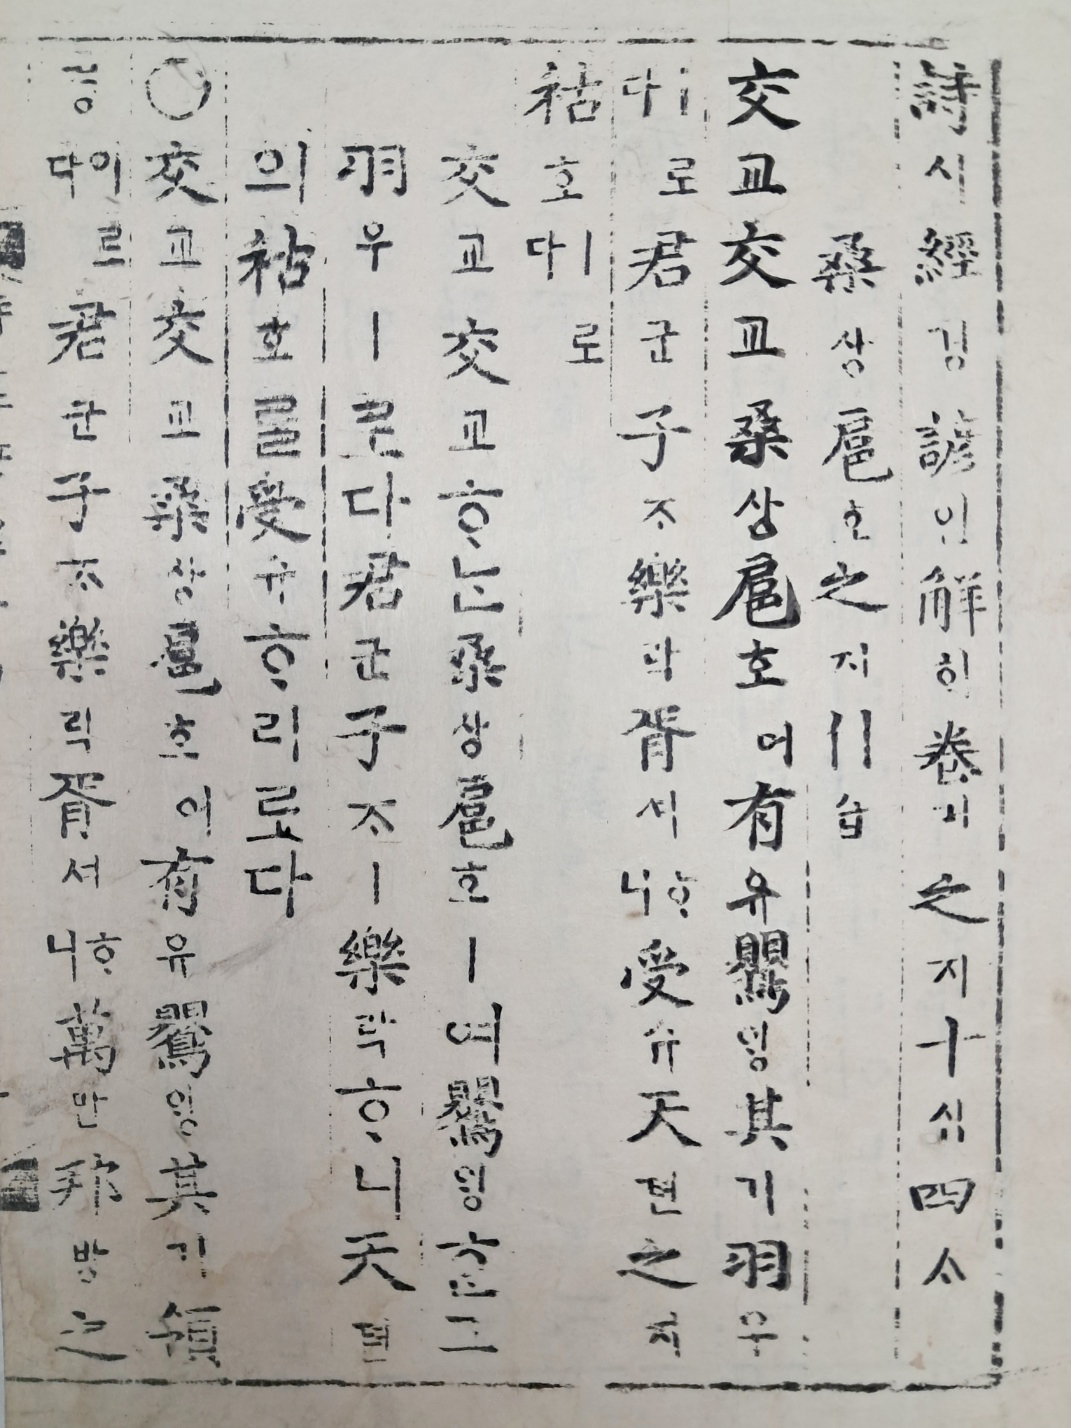 詩시經경諺언解ᄒᆡ卷권之지十십四ᄉᆞ
桑상扈호之지什습
交교交교桑상扈호여有유鸎ᄋᆡᆼ其기羽우
ㅣ로다君군子ᄌᆞ樂락胥셔ᄒᆞ니受슈天텬之지
祜호ㅣ로다
交교交교ᄒᆞᄂᆞᆫ桑상扈호ㅣ여鸎ᄋᆡᆼᄒᆞᆫ그
羽우ㅣ로다君군子ᄌᆞㅣ樂락ᄒᆞ니天텬
의祜호를受슈ᄒᆞ리로다
○交교交교桑상扈호여有유鸎ᄋᆡᆼ其기領
령이로다君군子ᄌᆞ樂락胥셔ᄒᆞ니萬만邦방之